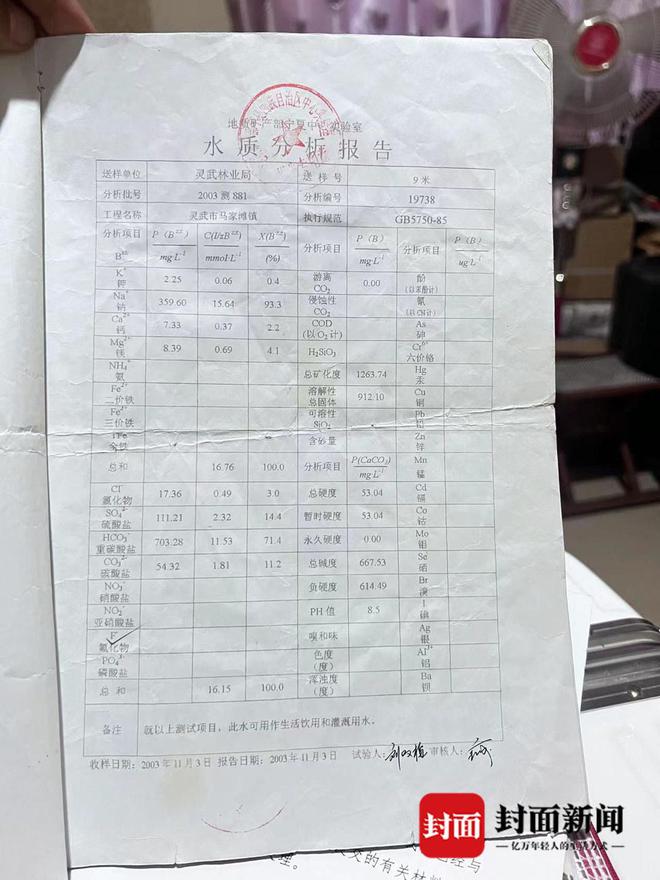 水质分析报告
送样单位 灵武林业局 送样号 9米
分析批号 2003测881 分析编号 19738
工程名称 灵武市马家滩镇 执行规范 GB5750-85
分析项目 P(B) C(1/zB) X(B) 分析项目 P(B) 分析项目 P(B)
mg·L⁻¹ mmol·L⁻¹ (%) mg·L⁻¹ ug·L⁻¹
K⁺ 钾 2.25 0.06 0.4 游离CO₂ 0.00 酚(以苯酚计)
Na⁺ 钠 359.60 15.64 93.3 侵蚀性CO₂ 氰(以CN计)
Ca²⁺ 钙 7.33 0.37 2.2 COD(以O₂计) As 砷
Mg²⁺ 镁 8.39 0.69 4.1 H₂SiO₃ Cr⁶⁺ 六价铬
NH₄⁺ 氨 总矿化度 1263.74 Hg 汞
Fe²⁺ 二价铁 溶解性总固体 912.10 Cu 铜
Fe³⁺ 三价铁 可溶性SiO₂ Pb 铅
TFe 全铁 含砂量 Zn 锌
总和 16.76 100.0 分析项目 P(CaCO₃) mg·L⁻¹ Mn 锰
Cl⁻ 氯化物 17.36 0.49 3.0 总硬度 53.04 Cd 镉
SO₄²⁻ 硫酸盐 111.21 2.32 14.4 暂时硬度 53.04 Co 钴
HCO₃⁻ 重碳酸盐 703.28 11.53 71.4 永久硬度 0.00 Mo 钼
CO₃²⁻ 碳酸盐 54.32 1.81 11.2 总碱度 667.53 Se 硒
NO₃⁻ 硝酸盐 负硬度 614.49 Br 溴
NO₂⁻ 亚硝酸盐 PH值 8.5 I 碘
F⁻ 氟化物 嗅和味 Ag 银
PO₄³⁻ 磷酸盐 色度(度) Al³⁺ 铝
总和 16.15 100.0 浑浊度(度) Ba 钡
备注 就以上测试项目，此水可用作生活饮用和灌溉用水。
收样日期：2003年11月3日 报告日期：2003年11月3日 试验人： 审核人：
封面 封面新闻
亿万年轻人的生活方式
的有关材料